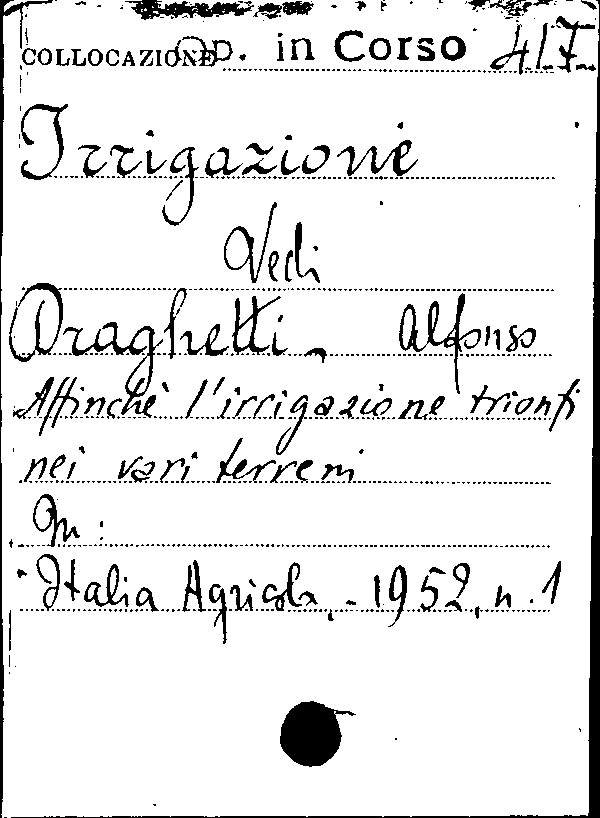 COLLOCAZIONE OD. in Corso 417
Irrigazione
Vedi
Draghetti, Alfonso
Affinchè l'irrigazione trionfi
nei vari terreni
In:
Italia Agricola, - 1952, n. 1